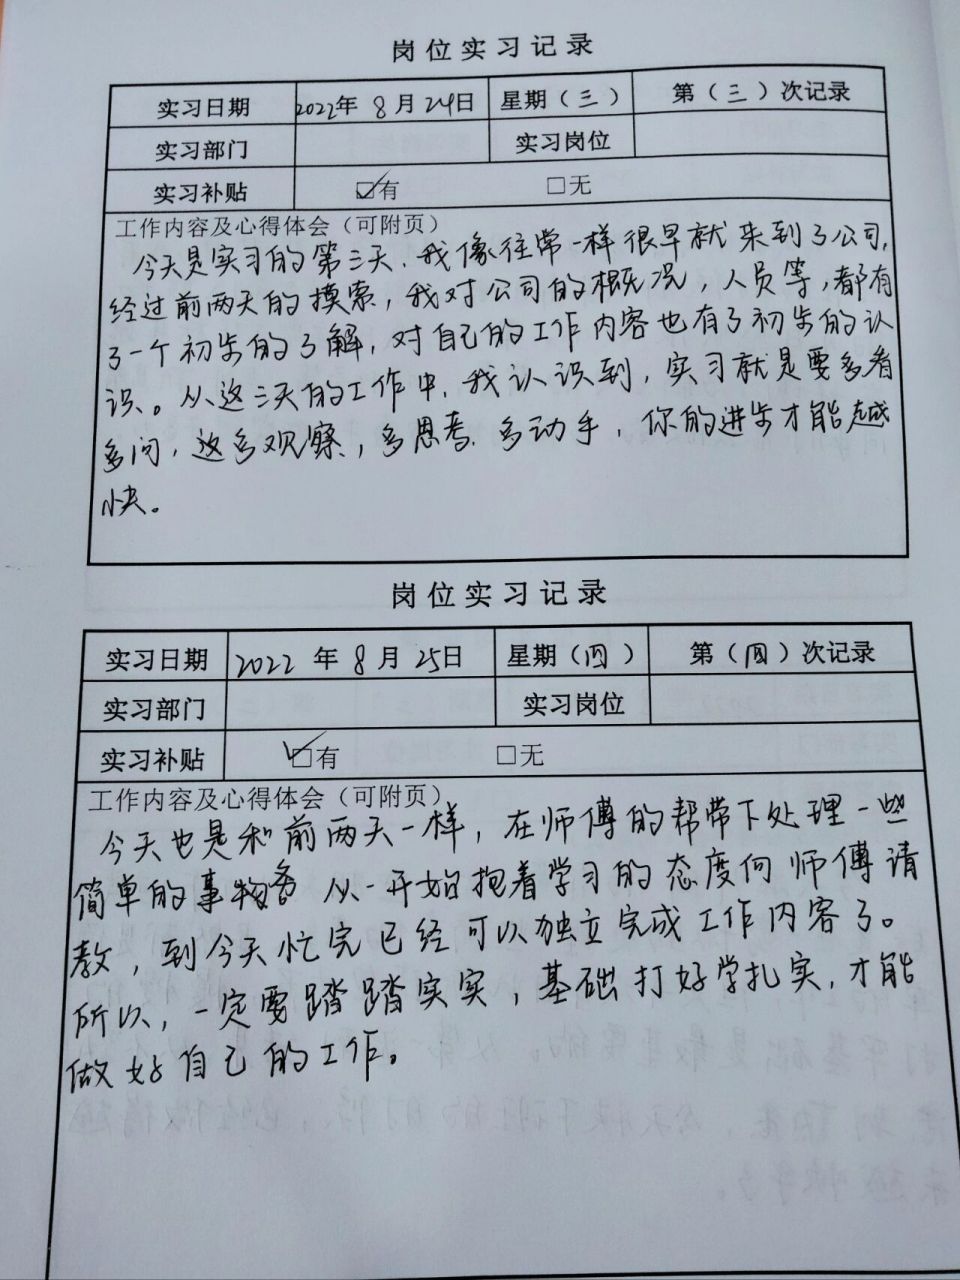 岗位实习记录
实习日期 2022年 8月 24日 星期（三） 第（三）次记录
实习部门 实习岗位
实习补贴 ☑有 □无
工作内容及心得体会（可附页）
今天是实习的第三天，我像往常一样很早就来到了公司，
经过前两天的摸索，我对公司的概况，人员等，都有
了一个初步的了解，对自己的工作内容也有了初步的认
识。从这三天的工作中，我认识到，实习就是要多看
多问，这多观察，多思考，多动手，你的进步才能越
快。
岗位实习记录
实习日期 2022 年 8月 25日 星期（四） 第（四）次记录
实习部门 实习岗位
实习补贴 ☑有 □无
工作内容及心得体会（可附页）
今天也是和前两天一样，在师傅的帮带下处理一些
简单的事物务 从一开始抱着学习的态度向师傅请
教，到今天忙完已经可以独立完成工作内容了。
所以，一定要踏踏实实，基础打好学扎实，才能
做好自己的工作。